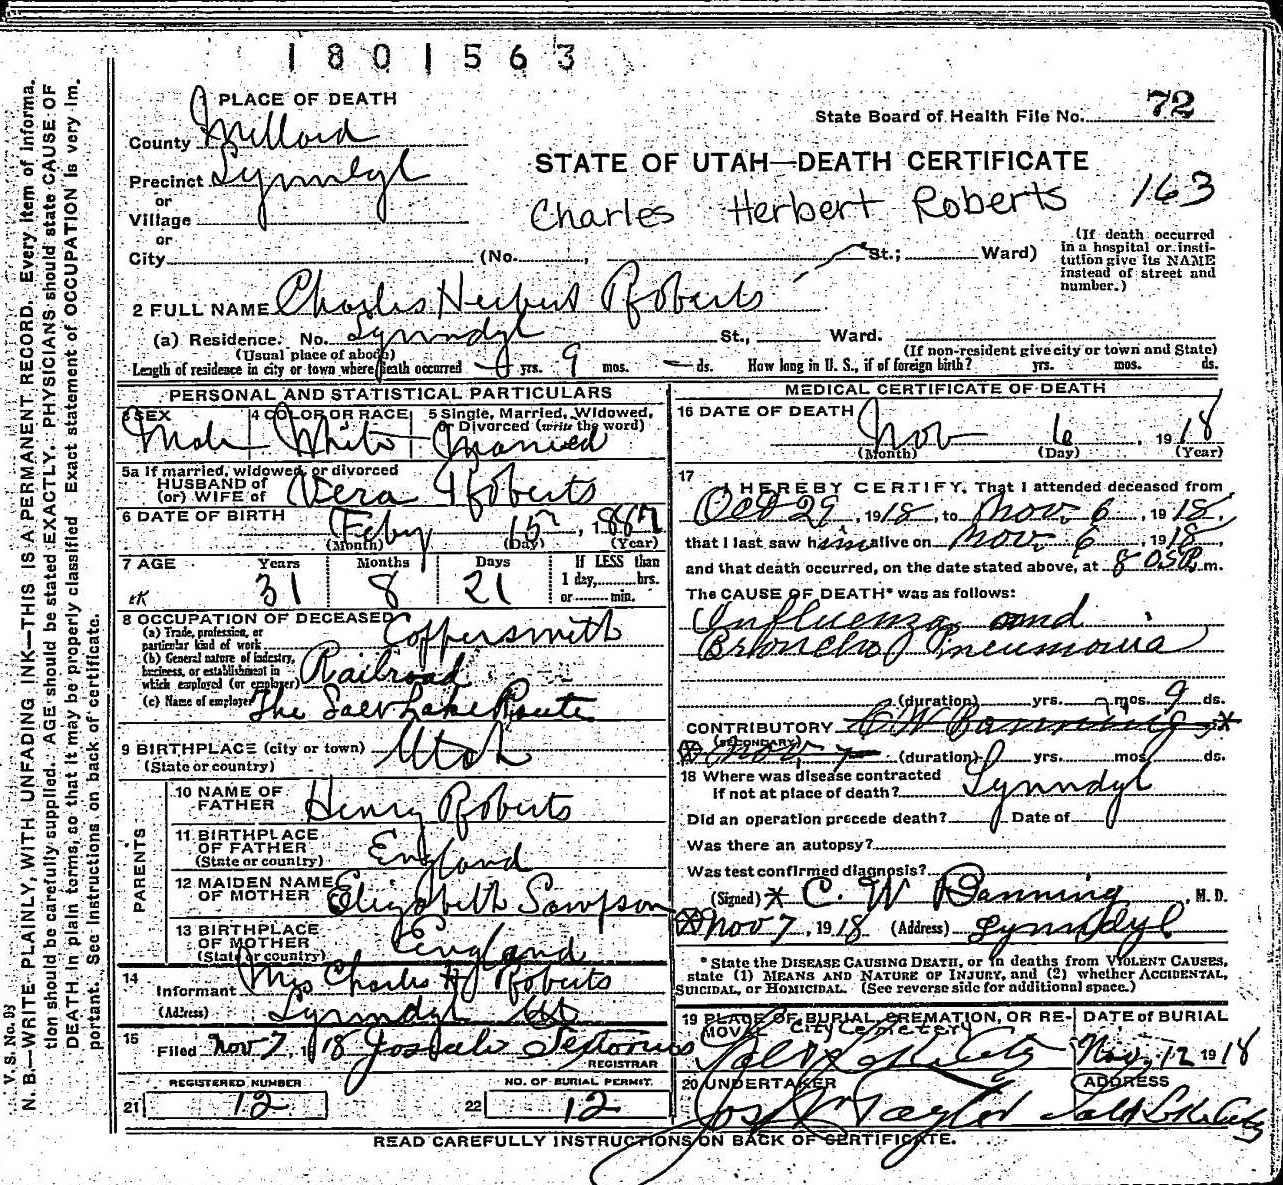 1801563
PLACE OF DEATH
State Board of Health File No. 72
County Millard
STATE OF UTAH—DEATH CERTIFICATE
Precinct Lynndyl
or
Village
Charles Herbert Roberts 163
or
City (No. , St.; Ward)
(If death occurred
in a hospital or insti-
tution give its NAME
instead of street and
number.)
2 FULL NAME Charles Herbert Roberts
(a) Residence. No. Lynndyl St., Ward.
(Usual place of abode) (If non-resident give city or town and State)
Length of residence in city or town where death occurred yrs. 9 mos. — ds. How long in U. S., if of foreign birth? yrs. mos. ds.
PERSONAL AND STATISTICAL PARTICULARS
3 SEX 4 COLOR OR RACE 5 Single, Married, Widowed,
or Divorced (write the word)
Male White Married
5a If married, widowed, or divorced
HUSBAND of
(or) WIFE of Vera Roberts
6 DATE OF BIRTH Feby 15, 1887
(Month) (Day) (Year)
7 AGE Years Months Days If LESS than
1 day, hrs.
or min.
31 8 21
8 OCCUPATION OF DECEASED
(a) Trade, profession, or
particular kind of work Coppersmith
(b) General nature of industry,
business, or establishment in
which employed (or employer) Railroad
(c) Name of employer The Salt Lake Route
9 BIRTHPLACE (city or town)
(State or country) Utah
PARENTS
10 NAME OF
FATHER Henry Roberts
11 BIRTHPLACE
OF FATHER
(State or country) England
12 MAIDEN NAME
OF MOTHER Elizabeth Sampson
13 BIRTHPLACE
OF MOTHER
(State or country) England
14
Informant Mrs Charles H Roberts
(Address) Lynndyl Ut
15
Filed Nov 7, 1918
REGISTRAR
REGISTERED NUMBER NO. OF BURIAL PERMIT.
21 12 22 12
MEDICAL CERTIFICATE OF DEATH
16 DATE OF DEATH
Nov 6, 1918
(Month) (Day) (Year)
17
I HEREBY CERTIFY, That I attended deceased from
Oct 29, 1918, to Nov. 6, 1918,
that I last saw him alive on Nov. 6, 1918,
and that death occurred, on the date stated above, at m.
The CAUSE OF DEATH* was as follows:
Influenza and
Broncho Pneumonia
(duration) yrs. mos. 9 ds.
CONTRIBUTORY C W Banning
(SECONDARY) Nov. 7
(duration) yrs. mos. ds.
18 Where was disease contracted
if not at place of death? Lynndyl
Did an operation precede death? Date of
Was there an autopsy?
Was test confirmed diagnosis?
(Signed) C. W Banning, M. D.
Nov 7, 1918 (Address) Lynndyl
*State the DISEASE CAUSING DEATH, or in deaths from VIOLENT CAUSES,
state (1) MEANS AND NATURE OF INJURY, and (2) whether ACCIDENTAL,
SUICIDAL, or HOMICIDAL. (See reverse side for additional space.)
19 PLACE OF BURIAL, CREMATION, OR RE-
MOVAL City Cemetery
DATE of BURIAL
Salt Lake City Nov. 12 1918
20 UNDERTAKER ADDRESS
Jos Wm Taylor Salt Lake City
READ CAREFULLY INSTRUCTIONS ON BACK OF CERTIFICATE.
V. S. No. 93
N. B.—WRITE PLAINLY, WITH UNFADING INK—THIS IS A PERMANENT RECORD. Every item of informa-
tion should be carefully supplied. AGE should be stated EXACTLY. PHYSICIANS should state CAUSE OF
DEATH in plain terms, so that it may be properly classified. Exact statement of OCCUPATION is very im-
portant. See instructions on back of certificate.